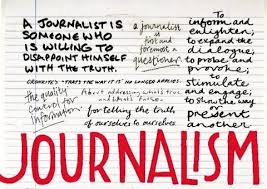 A JOURNALIST IS
SOMEONE WHO
IS WILLING TO
DISAPPOINT HIMSELF
WITH THE TRUTH.
a journalist
is
first and
foremost a
questioner.
To
inform and
enlighten;
to expand the
dialogue;
to probe and
provoke;
to
stimulate
and engage;
to show the way
present
another.
"THAT'S THE WAY IT IS" NO LONGER APPLIES.
the quality
control for
information.
About addressing what's true
and what's false.
for telling the truth,
of ourselves to ourselves.
JOURNALISM